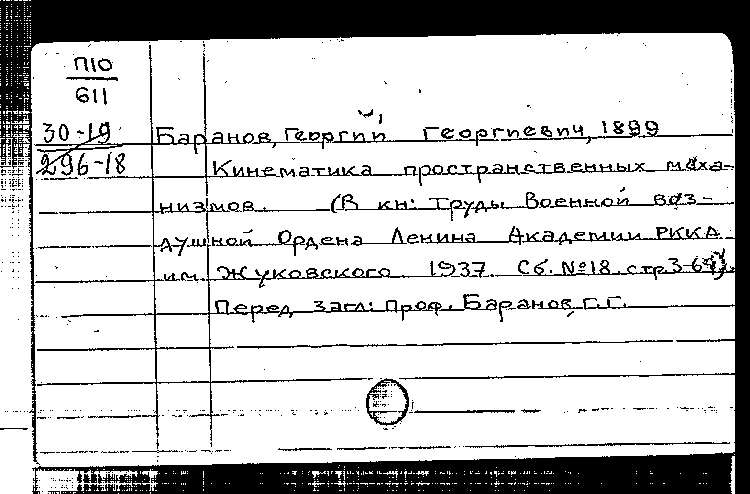 П10
611
30-19
296-18
Баранов, Георгий Георгиевич, 1899
Кинематика пространственных меха-
низмов. (В кн: Труды Военной воз-
душной Ордена Ленина Академии РККА
им. Жуковского. 1937. Сб. №18. стр 3-
Перед загл: Проф. Баранов, Г.Г.